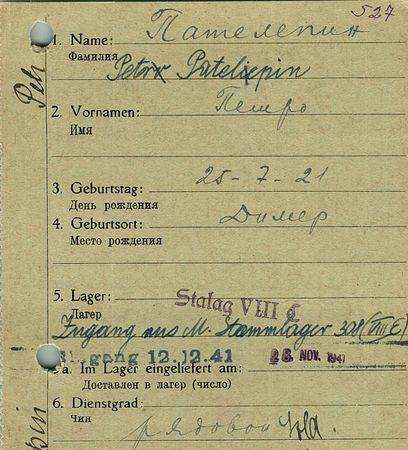 527
1. Name: Пателепин
Фамилия Petro Pateliepin
2. Vornamen: Петро
Имя
3. Geburtstag: 25-7-21
День рождения
4. Geburtsort: Димер
Место рождения
5. Lager: Stalag VIII
Лагер
Zugang aus M. Stammlager 308 (VIII E)
gang 12.12.41 28. NOV. 1941
5a. Im Lager eingeliefert am:
Доставлен в лагер (число)
6. Dienstgrad:
Чин рядовой